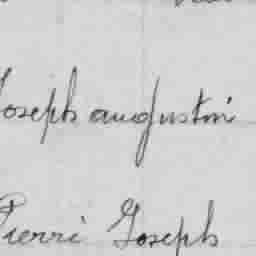 Joseph augustin
Pierre Joseph